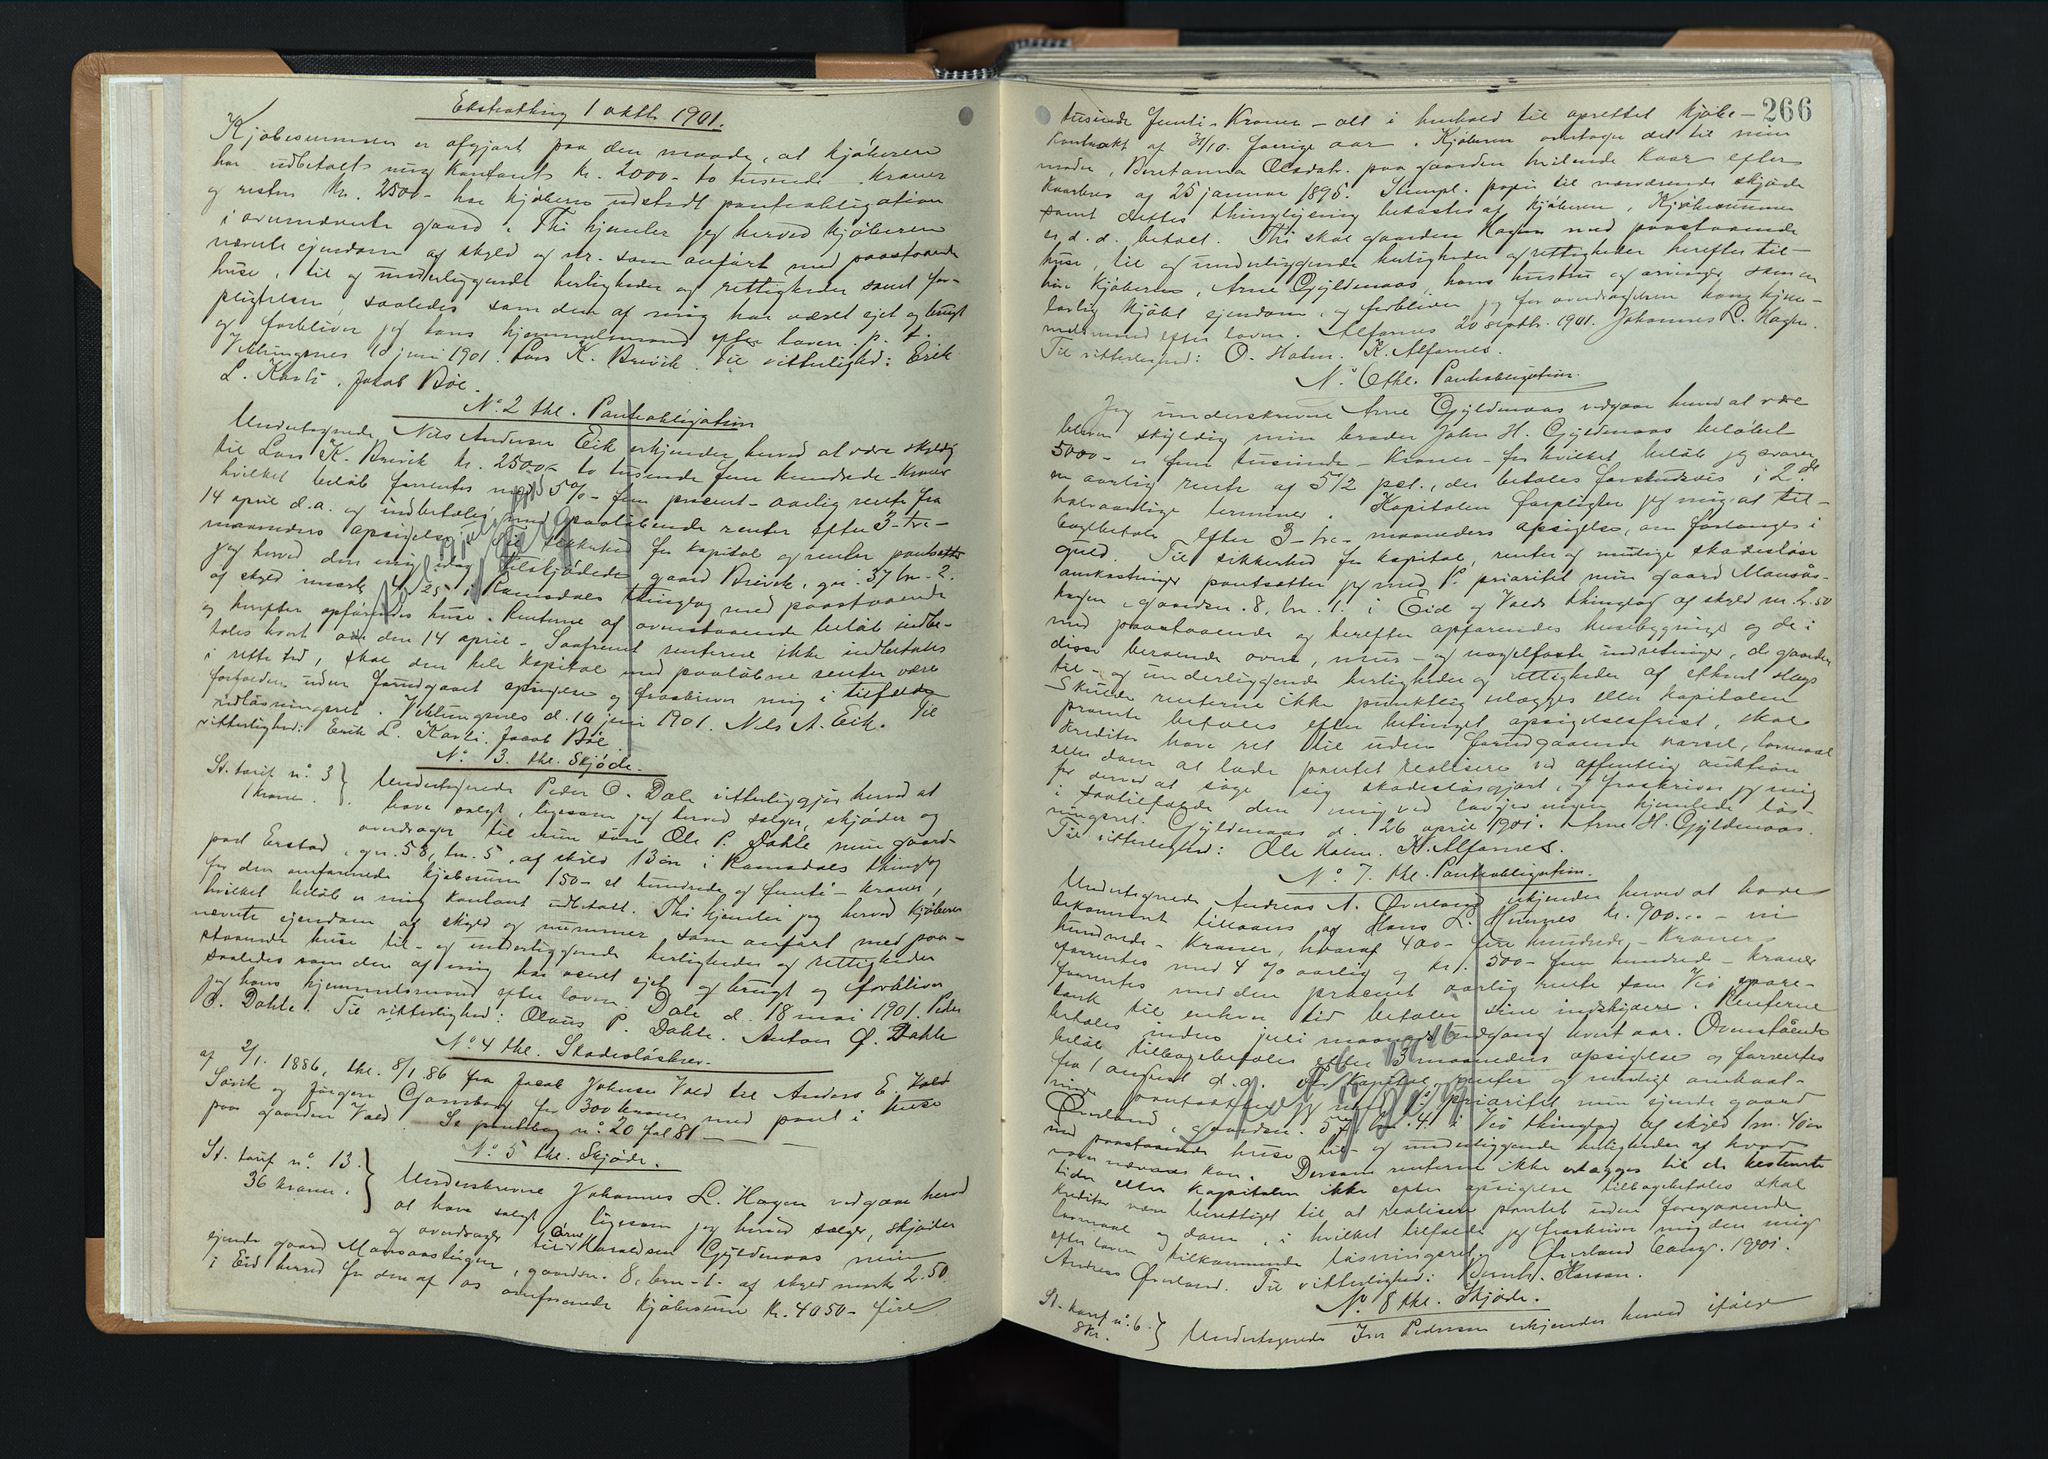 Ekstrathing 1 oktbr. 1901.
Kjøbesummen er afgjort paa den maade, at kjøberen
har udbetalt mig kontant kr. 2000 - to tusende kroner
og resten kr. 2500 - har kjøberen udstedt pantobligation
i ovennævnte gaard. Thi hjemler jeg herved kjøberen
nævnte eiendom af skyld og nr. som anført med paastaaende
huse, til og underliggende herligheder og rettigheder samt for-
pligtelser, saaledes som den af mig har været eiet og brugt
og forbliver jeg hans hjemmelsmand efter loven. p. t.
Veblungsnes 10 juni 1901. Lars K. Brevik. Til vitterlighed: Erik
L. Karli. Jacob Bøe.
No. 2 thl. Pantobligation
Undertegnede Nils Andersen Eik erkjender herved at være skyldig
til Lars K. Brevik kr. 2500 - to tusende fem hundrede - kroner
hvilket beløb forrentes med 5% - fem procent - aarlig rente fra
14 april d.a. og indbetales med paaløbende renter efter 3 - tre -
maaneders opsigelse. Til sikkerhed for kapital og renter pantsætter
jeg herved den mig idag tilskjødede gaard Brevik, gn. 37 bn. 2.
af skyld mark 4.25 i Ramsdals thinglag med paastaaende
og herefter opførendes huse. Renterne af ovenstaaende beløb indbe-
tales hvert aar den 14 april. Saafremt renterne ikke indbetales
i rette tid, skal den hele kapital med paaløbne renter være
forfalden uden forudgaaet opsigelse og fraskriver mig i tilfælde
indløsningsret. Veblungsnes d. 10 juni 1901. Nils A. Eik. Til
vitterlighed: Erik L. Karli. Jacob Bøe
No. 3. thl. Skjøde.
St. tarif no. 3
1 krone.
Undertegnede Peder O. Dale vitterliggjør herved at
have solgt, ligesom jeg herved sælger, skjøder og
overdrager til min søn Ole P. Dahle min gaard-
part Erstad, gn. 58, bn. 5, af skyld 13 øre i Ramsdals thinglag
for den omforenede kjøbesum 150 - et hundrede og femti - kroner,
hvilket beløb er mig kontant udbetalt. Thi hjemler jeg herved kjøberen
nævnte eiendom af skyld og nummer som anført med paa-
staaende huse til- og underliggende herligheder og rettigheder
saaledes som den af mig har været eiet og brugt og forbliver
jeg hans hjemmelsmand efter loven. Dale d. 18 mai 1901. Peder
O. Dahle. Til vitterlighed: Olaus P. Dahle. Anton O. Dahle
No. 4 thl. Skadesløsbrev.
af 2/1. 1886, thl. 8/1.86 fra Jacob Johnsen Vold til Anders E. Vold
Sørik og Jørgen Gansberg for 300 kroner med pant i huse
paa gaarden Vold. Se pantebog no. 20 fol 81
No. 5 thl. Skjøde.
St. tarif no. 13.
36 kroner.
Underskrevne Johannes L. Hagen vedgaar herved
at have solgt ligesom jeg herved sælger, skjøder
og overdrager til Arne Haraldsen Gyldenaas min
eiende gaard Mansaashagen, gaardsn. 8, brn. 1. af skyld mark 2.50
i Eid herred for den af os omforenede kjøbesum kr. 4050 - fire
266
tusinde femti - kroner - alt i henhold til oprettet kjøbe-
kontrakt af 31/10. forrige aar. Kjøberen overtager det til min
moder, Beretanna Olsdatr. paa gaarden hvilende kaar efter
kaarbrev af 25 januar 1895. Stempl. papir til nærværende skjøde
samt dettes thinglysning bekostes af kjøberen. Kjøbesummen
er d. d. betalt. Thi skal gaarden Hagen med paastaaende
huse, til og underliggende herligheder og rettigheder herefter til-
høre kjøberen, Arne Gyldenaas, hans hustru og arvinger som en
lovlig kjøbt eiendom, og forbliver jeg for overdragelsen hans hjem-
melsmand efter loven. Alfarnes 20 septbr. 1901. Johannes L. Hagen.
Til vitterlighed: O. Holm. K. Alfarnes.
No. 6 thl. Pantobligation.
Jeg underskrevne Arne Gyldenaas vedgaar herved at være
bleven skyldig min broder John H. Gyldenaas beløbet
5000 - er fem tusinde - kroner - for hvilket beløb jeg svarer
en aarlig rente af 5 1/2 pct., der betales forskudsvis i 2de
halvaarlige terminer. Kapitalen forpligter jeg mig at til-
bagebetale efter 3 - tre - maaneders opsigelse, om forlanges i
guld. Til sikkerhed for kapital, renter og mulige skadesløse
omkostninger pantsætter jeg med 1. prioritet min gaard Mansaas-
hagen, gaardsn. 8, bn. 1. i Eid og Volds thinglag af skyld m. 2.50
med paastaaende og herefter opførendes husebygninger og de i
disse beroende ovne, mur- og nagelfaste indretninger, de gaarden
til- og underliggende herligheder og rettigheder af ethvert slags
Skulde renterne ikke punktlig erlægges eller kapitalen
promte betales efter betinget opsigelsesfrist, skal
kreditor have ret til uden forudgaaende varsel, lovmaal
eller dom at lade pantet realisere ved offentlig auktion
for derved at søge sig skadesløsgjort, og fraskriver jeg mig
i saatilfælde den mig ved lovgivningen hjemlede løs-
ningsret. Gyldenaas d. 26 april 1901. Arne H. Gyldenaas.
Til vitterlighed: Ole Holm. K. Alfarnes.
No. 7. thl. Pantobligation.
Undertegnede Andreas A. Øverland erkjender herved at have
bekommet tillaans af Hans L. Hunnes kr. 900.00 - ni
hundrede - kroner, hvoraf 400 - fire hundrede - kroner
forrentes med 4% aarlig og kr. 500 - fem hundrede - kroner
forrentes med den procent aarlig rente som Veø spare-
bank til enhver tid betaler sine indskydere. Renterne
betales inden juli maaneds udgang hvert aar. Ovenstaaende
beløb tilbagebetales efter 3 maaneders opsigelse og forrentes
fra 1 august d.a. For kapital, renter og mulige omkost-
ninger pantsætter jeg med 1. prioritet min eiende gaard
Øverland, gaardsn. 57 bn. 4. i Veø thinglag af skyld 1 m. 40 øre
med paastaaende huse til- og underliggende herligheder af hvad
navn nævnes kan. Dersom renterne ikke erlægges til de bestemte
tider eller kapitalen ikke efter opsigelse tilbagebetales skal
kreditor være berettiget til at realisere pantet uden foregaaende
lovmaal og dom, i hvilket tilfælde jeg fraskriver mig den mig
efter loven tilkommende løsningsret. Øverland aug. 1901.
Andreas Øverland. Til vitterlighed: Bernh. Hansen.
No. 8 thl. Skjøde.
St. tarif no. 6.
8 kr.
Undertegnede Iver Pedersen erkjender herved ifølge